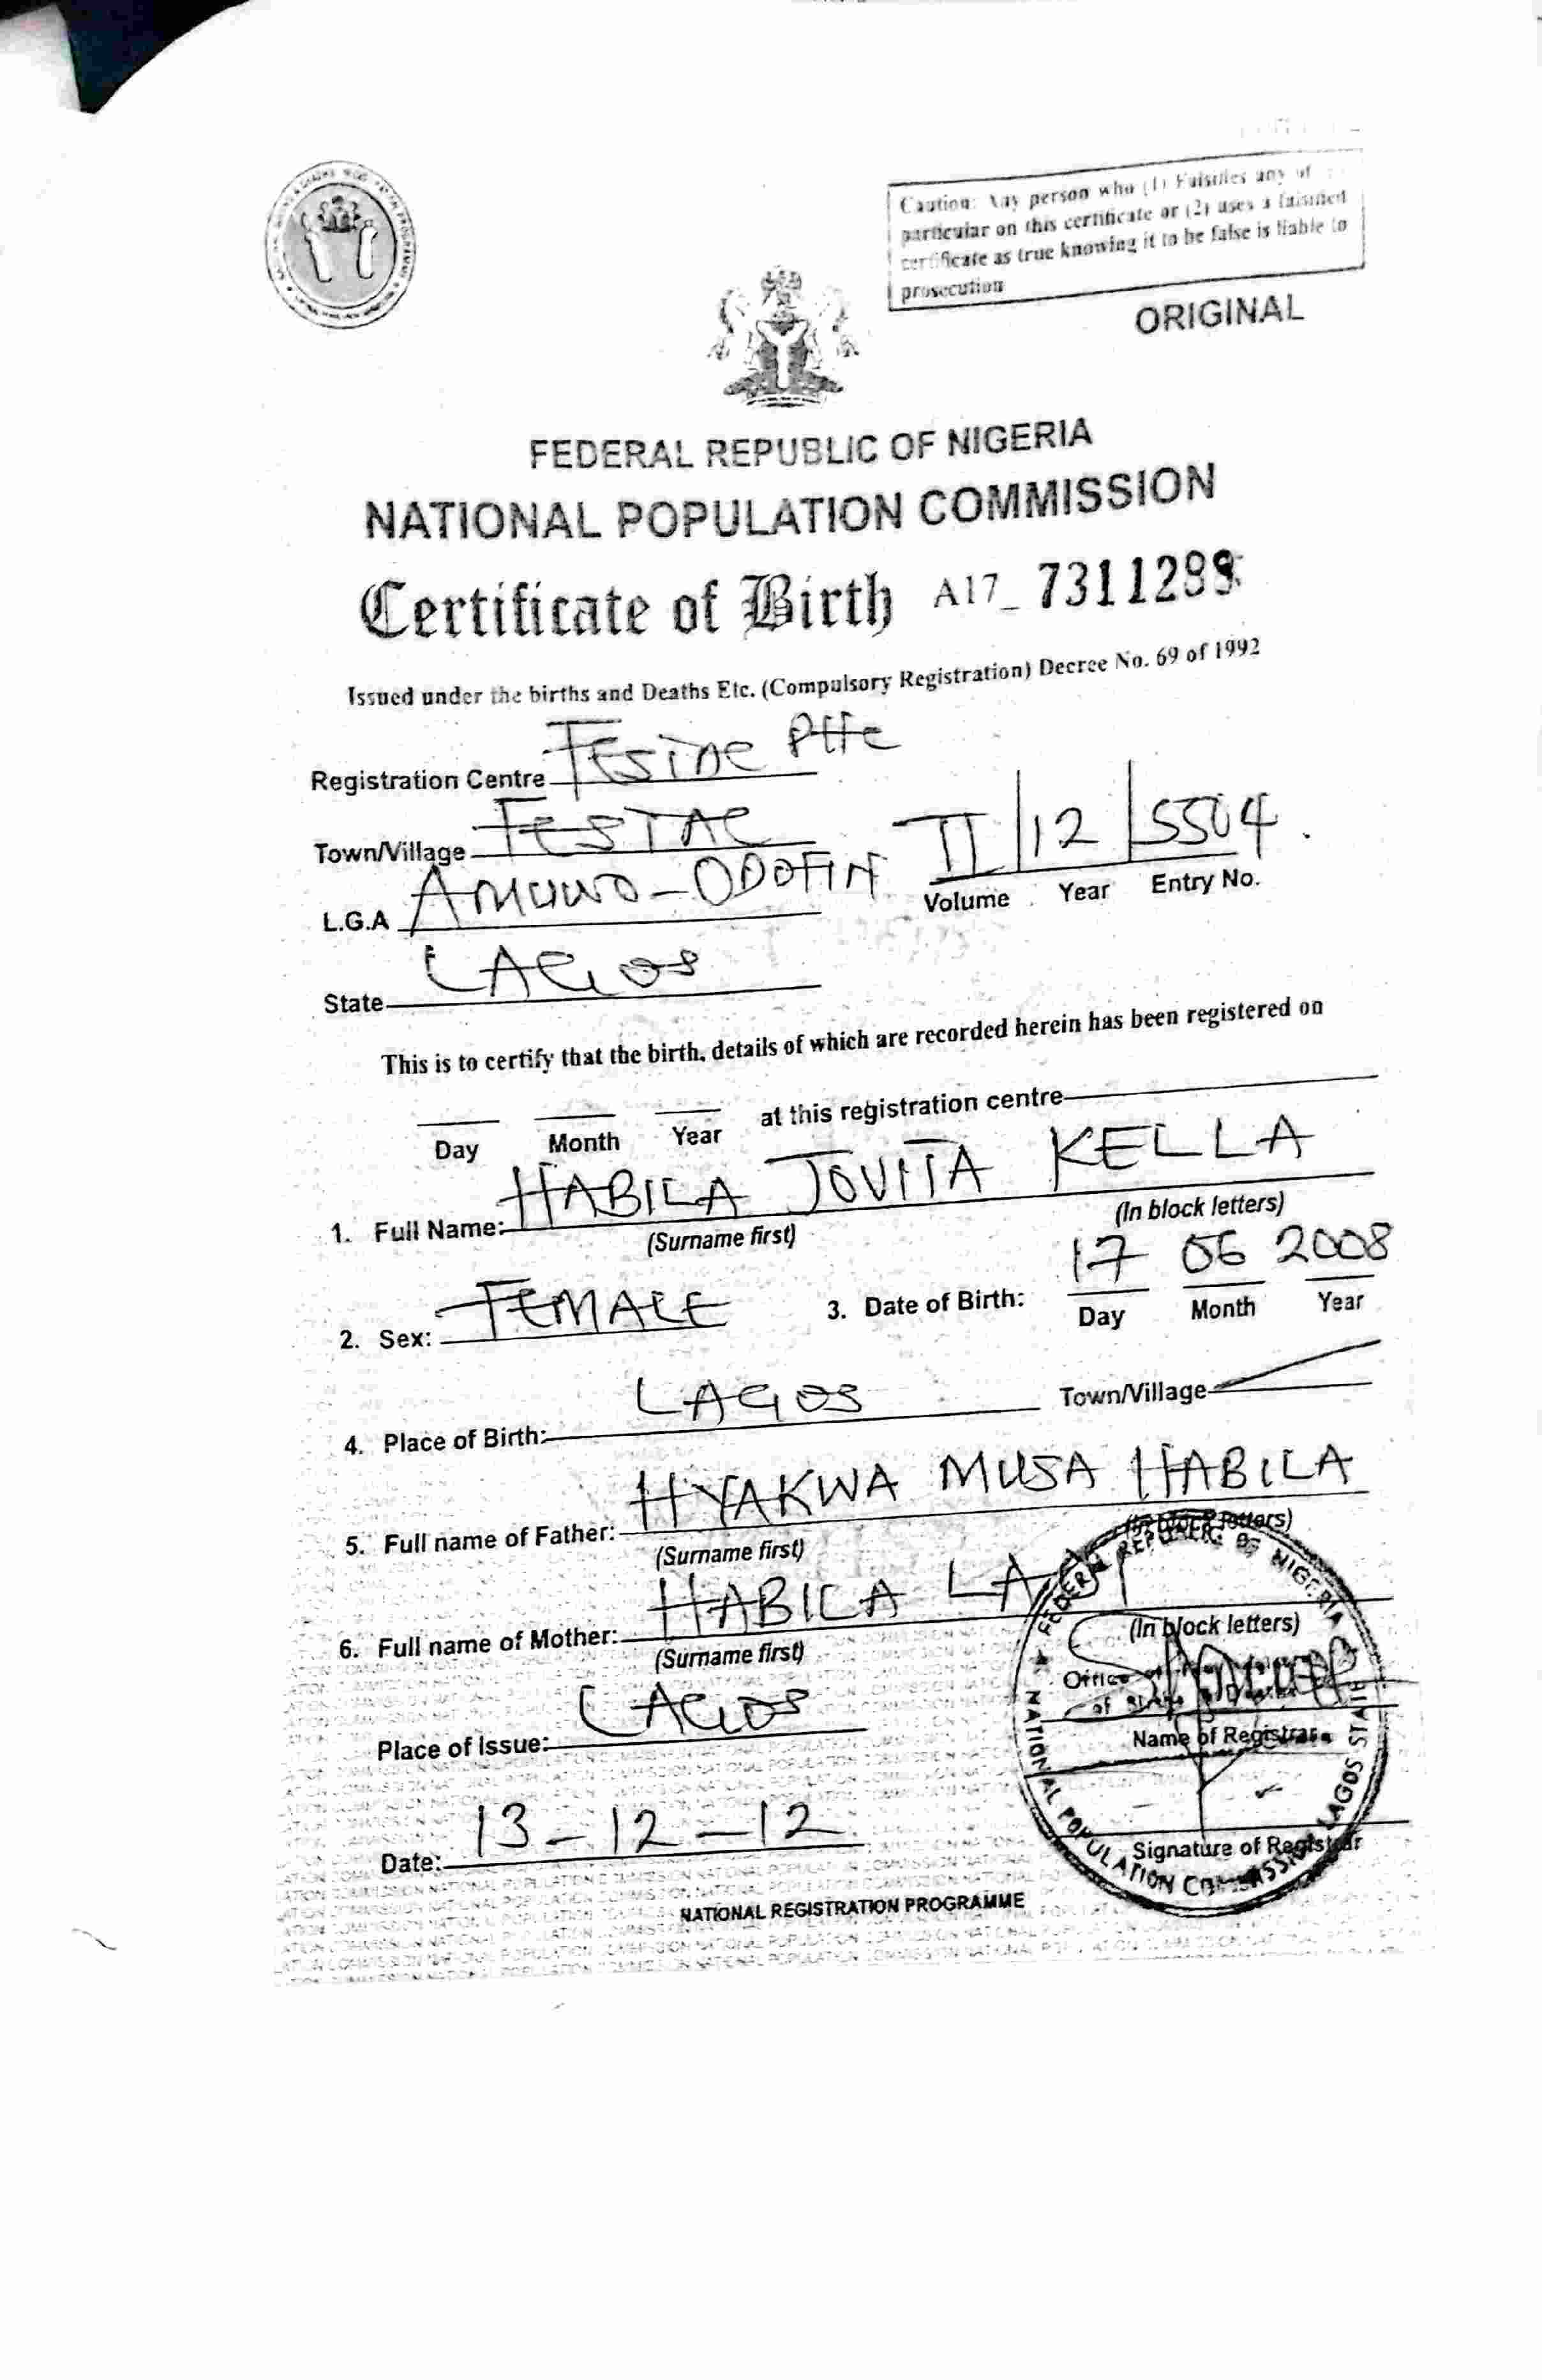 Caution: Any person who (1) Falsifies any of
particular on this certificate or (2) uses a falsified
certificate as true knowing it to be false is liable to
prosecution
ORIGINAL
FEDERAL REPUBLIC OF NIGERIA
NATIONAL POPULATION COMMISSION
Certificate of Birth A17_ 7311289
Issued under the births and Deaths Etc. (Compulsory Registration) Decree No. 69 of 1992
Registration Centre
Town/Village FESTAC II 12 5504
L.G.A AMUWO-ODOFIN Volume Year Entry No.
State LAGOS
This is to certify that the birth, details of which are recorded herein has been registered on
at this registration centre
Day Month Year
1. Full Name: HABILA JOVITA KELLA
(Surname first) (In block letters)
2. Sex: FEMALE 3. Date of Birth: 17 06 2008
Day Month Year
4. Place of Birth: LAGOS Town/Village
5. Full name of Father: HYAKWA MUSA HABILA
(Surname first) (In block letters)
6. Full name of Mother: HABILA
(Surname first) (In block letters)
Place of Issue: LAGOS
Name of Registrar
Date: 13-12-12
Signature of Registrar
FEDERAL REPUBLIC OF NIGERIA
NATIONAL POPULATION COMMISSION LAGOS STATE
NATIONAL REGISTRATION PROGRAMME